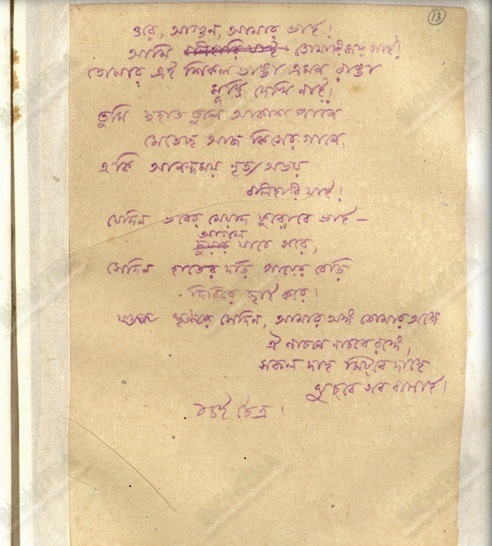 13
ওরে, আগুন, আমার ভাই!
আমি তোমারি জয় গাই!
তোমার এই শিকল ভাঙা এমন রাঙা
মূর্ত্তি দেখি নাই!
তুমি দুহাত তুলে আকাশ পানে
মেতেছ আজ কিসের গানে,
একি আনন্দময় নৃত্য অভয়
বলিহারি যাই!
যেদিন ভবের মেয়াদ ফুরোবে ভাই –
আগল
যাবে সরে,
সেদিন হাতের দড়ি পায়ের বেড়ি
দিবিরে ছাই করে!
সেদিন, আমার অঙ্গ তোমার অঙ্গে
ঐ নাচনে নাচবে রঙ্গে,
সকল দাহ মিটবে দাহে
ঘুচবে সব বালাই!
চৈত্র।